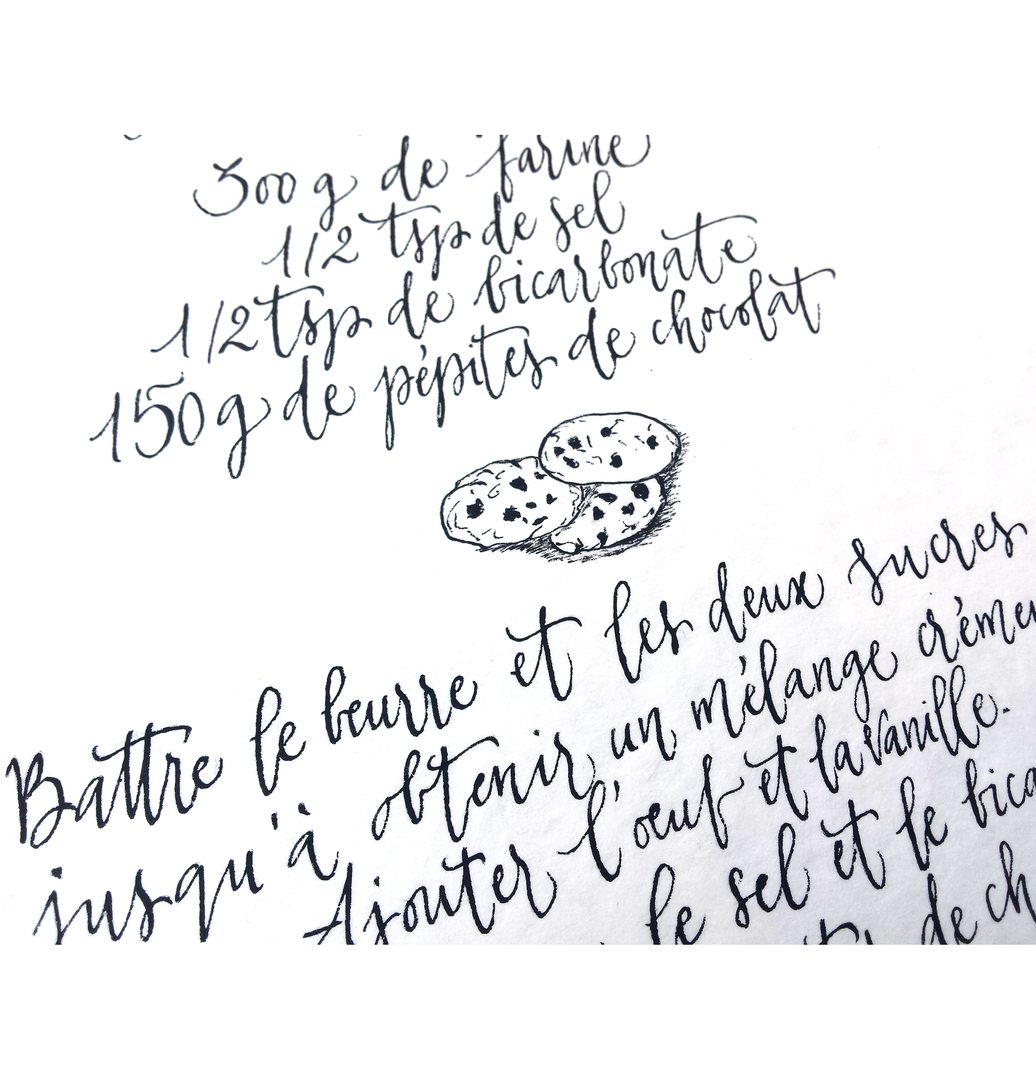 300 g de farine
1/2 tsp de sel
1/2 tsp de bicarbonate
150 g de pépites de chocolat
Battre le beurre et les deux sucres
jusqu'à obtenir un mélange crémeu
Ajouter l'oeuf et la vanille.
le sel et le bica
de ch